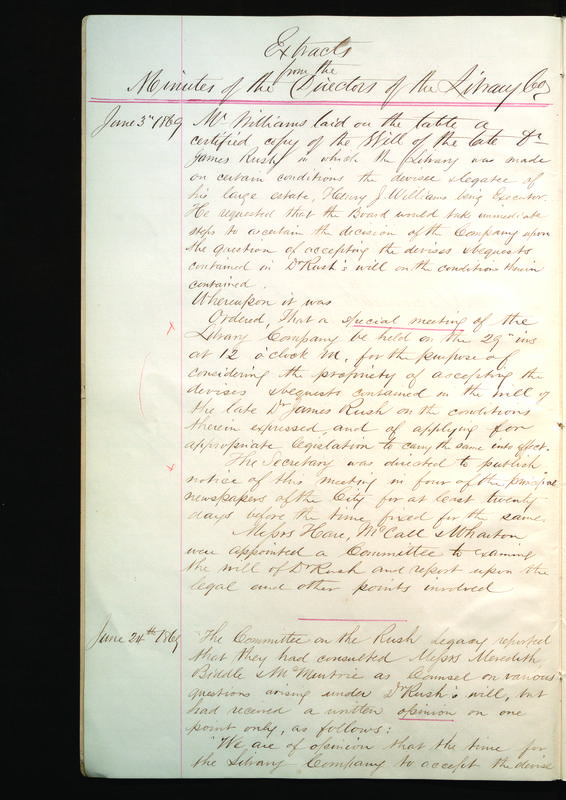 Extracts
from the
Minutes of the Directors of the Library Co.
June 3d 1869 Mr Williams laid on the table a
certified copy of the Will of the late Dr
James Rush, in which the Library was made
on certain conditions the devisee & legatee of
his large estate, Henry J Williams being Executor.
He requested that the Board would take immediate
steps to ascertain the decision of the Company upon
the question of accepting the devises & bequests
contained in Dr Rush's will on the conditions therein
contained.
Whereupon it was
Ordered, That a special meeting of the
Library Company be held on the 29th ins
at 12 o'clock M, for the purpose of
considering the propriety of accepting the
devises & bequests contained in the will of
the late Dr James Rush on the conditions
therein expressed, and of applying for
appropriate legislation to carry the same into effect.
The Secretary was directed to publish
notice of this meeting in four of the principal
newspapers of the City for at least twenty
days before the time fixed for the same.
Messrs Hare, McCall & Wharton
were appointed a Committee to examine
the will of Dr Rush and report upon the
legal and other points involved
June 24th 1869 The Committee on the Rush Legacy reported
that they had consulted Messrs Meredith
Biddle & McMurtrie as Counsel on various
questions arising under Dr Rush's will, but
had received a written opinion on one
point only, as follows:
"We are of opinion that the time for
the Library Company to accept the devise